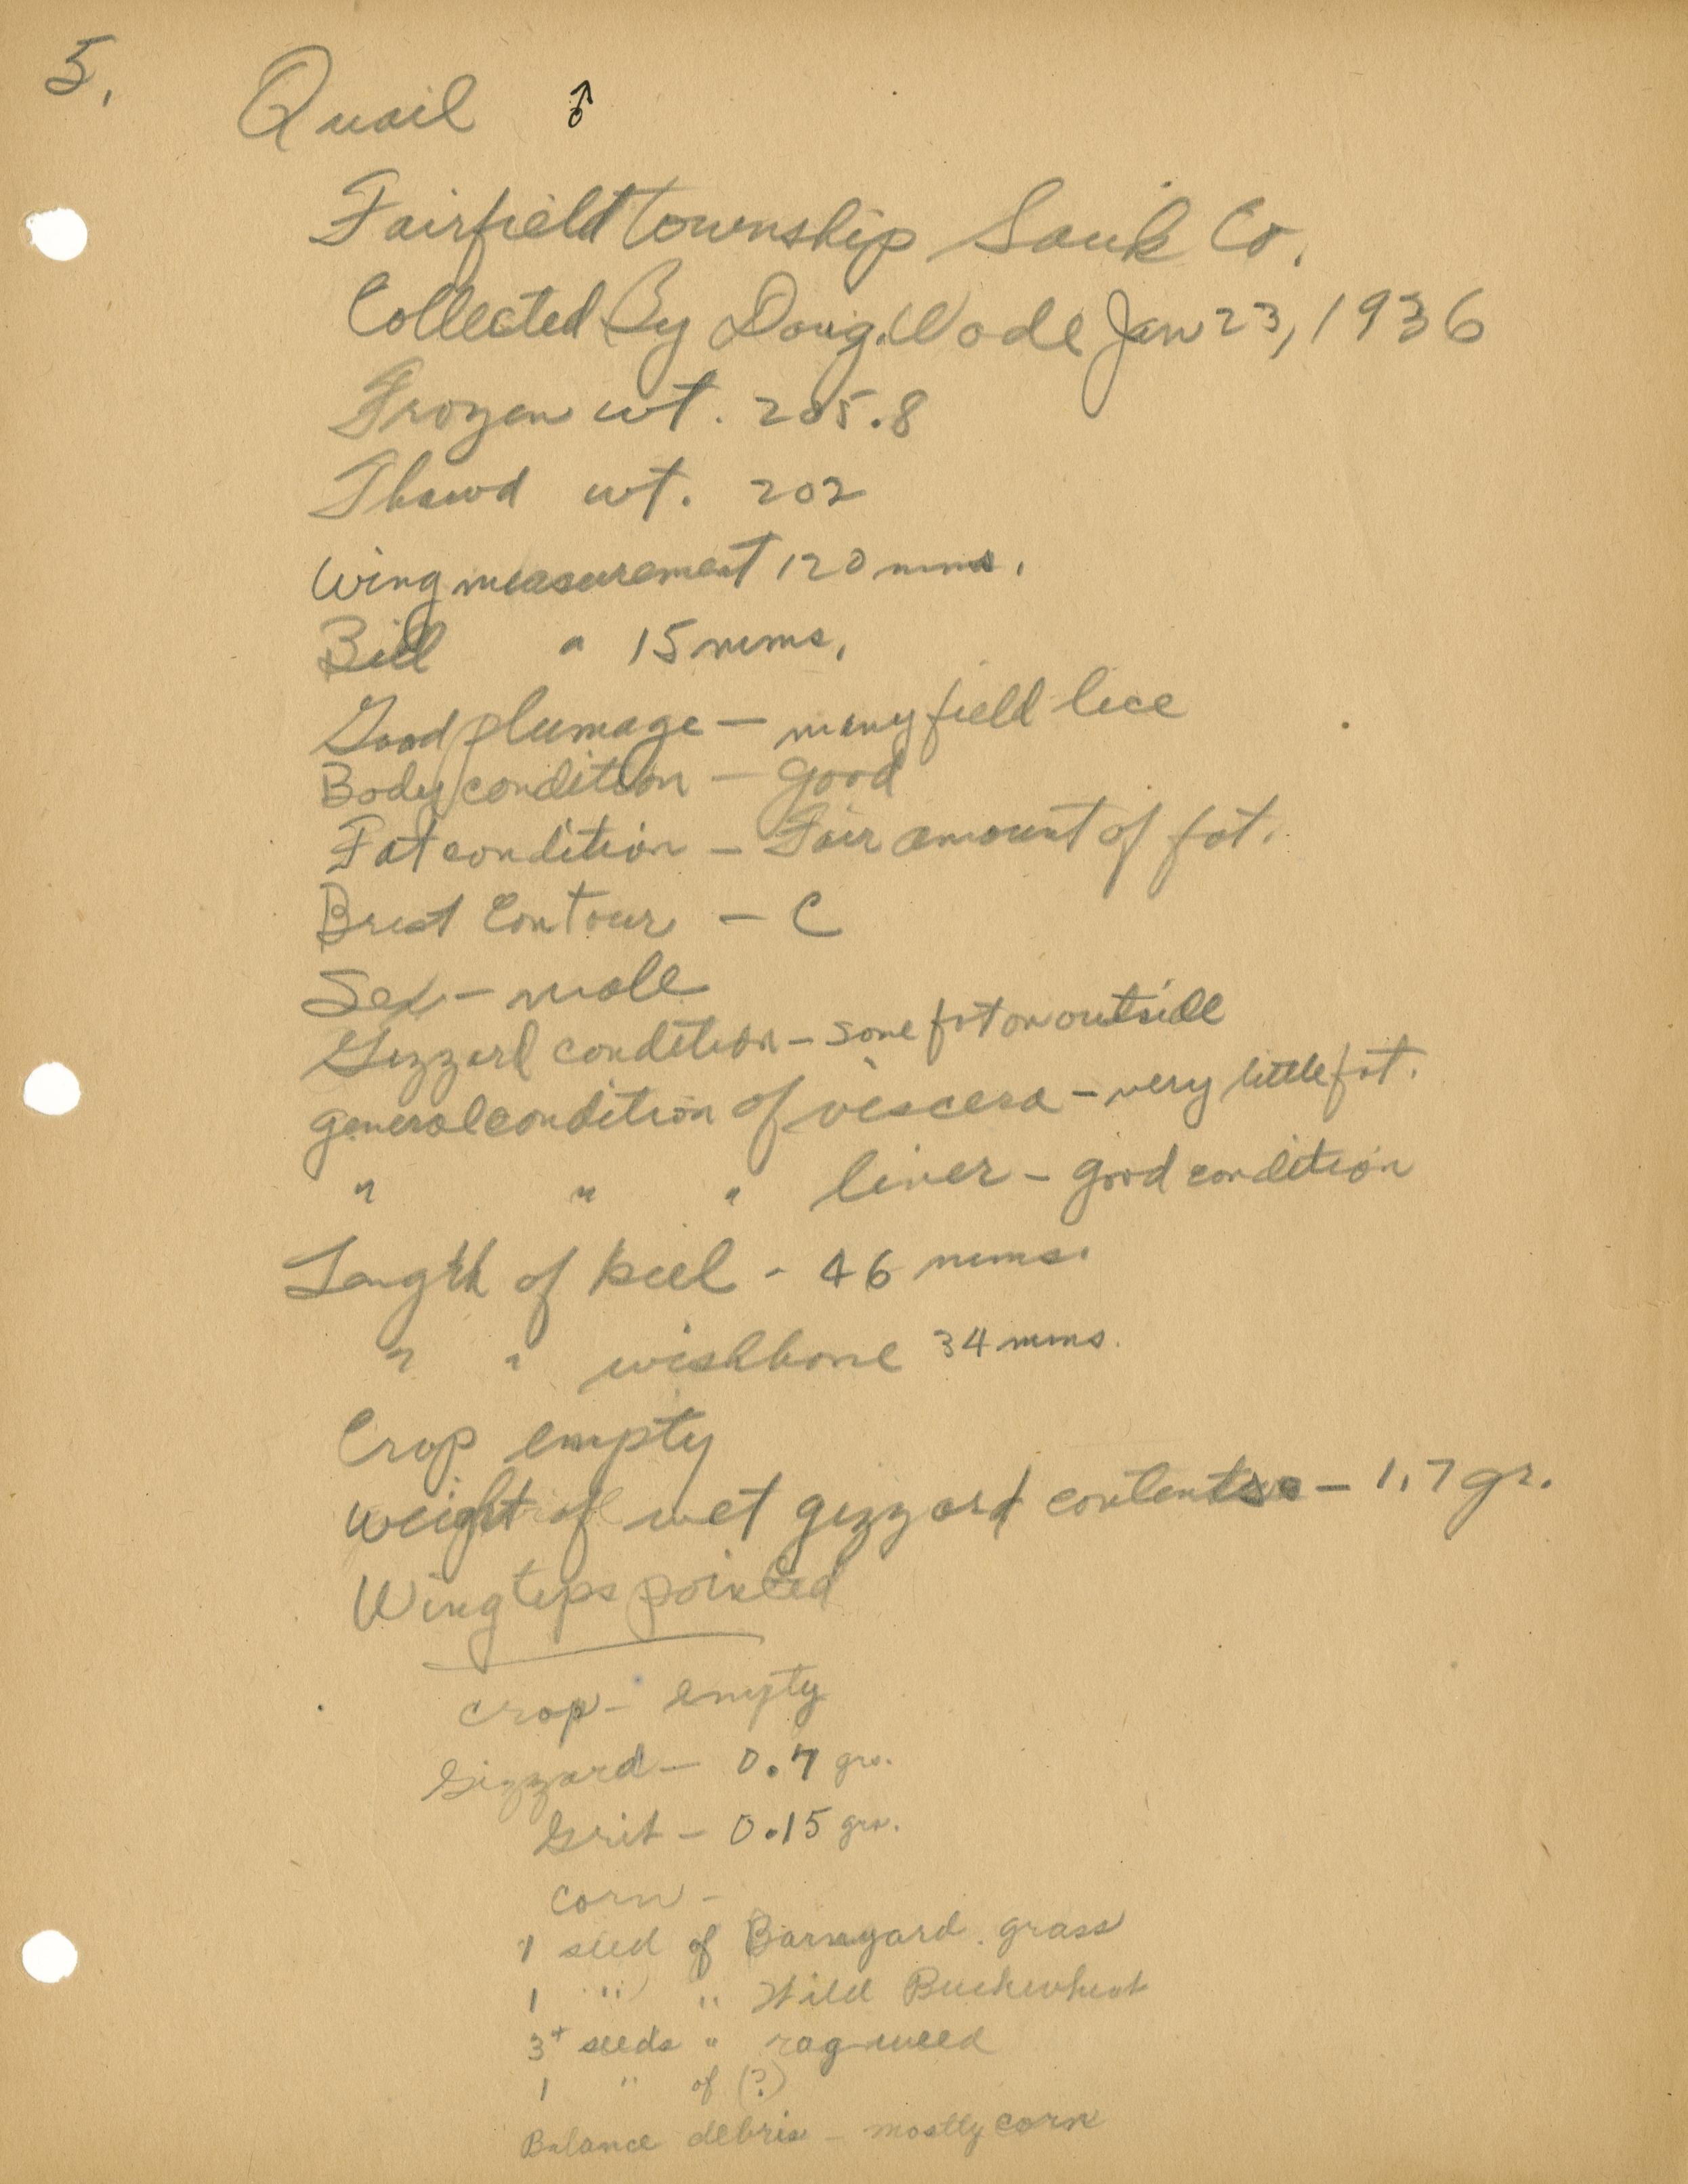 5.
Quail ♂
Fairfield township Sauk Co.
Collected By Doug. Wade Jan 23, 1936
Frozen wt. 205.8
Thawd wt. 202
Wing measurement 120 mms.
Bill " 15 mms.
Good plumage — many field lice
Body condition — good
Fat condition — Fair amount of fat.
Brest Contour — C
Sex — male
Gizzard condition — some fat on outside
general condition of viscera — very little fat.
" " " liver — good condition
Length of keel - 46 mms.
" " wishbone 34 mms.
Crop empty
weight of wet gizzard contents — 1.7 gr.
Wing tips pointed
crop — empty
Gizzard — 0.7 grs.
Grit — 0.15 grs.
corn —
1 seed of Barnyard grass
1 " " Wild Buckwheat
3+ seeds " rag-weed
1 " of (?)
Balance debris — mostly corn